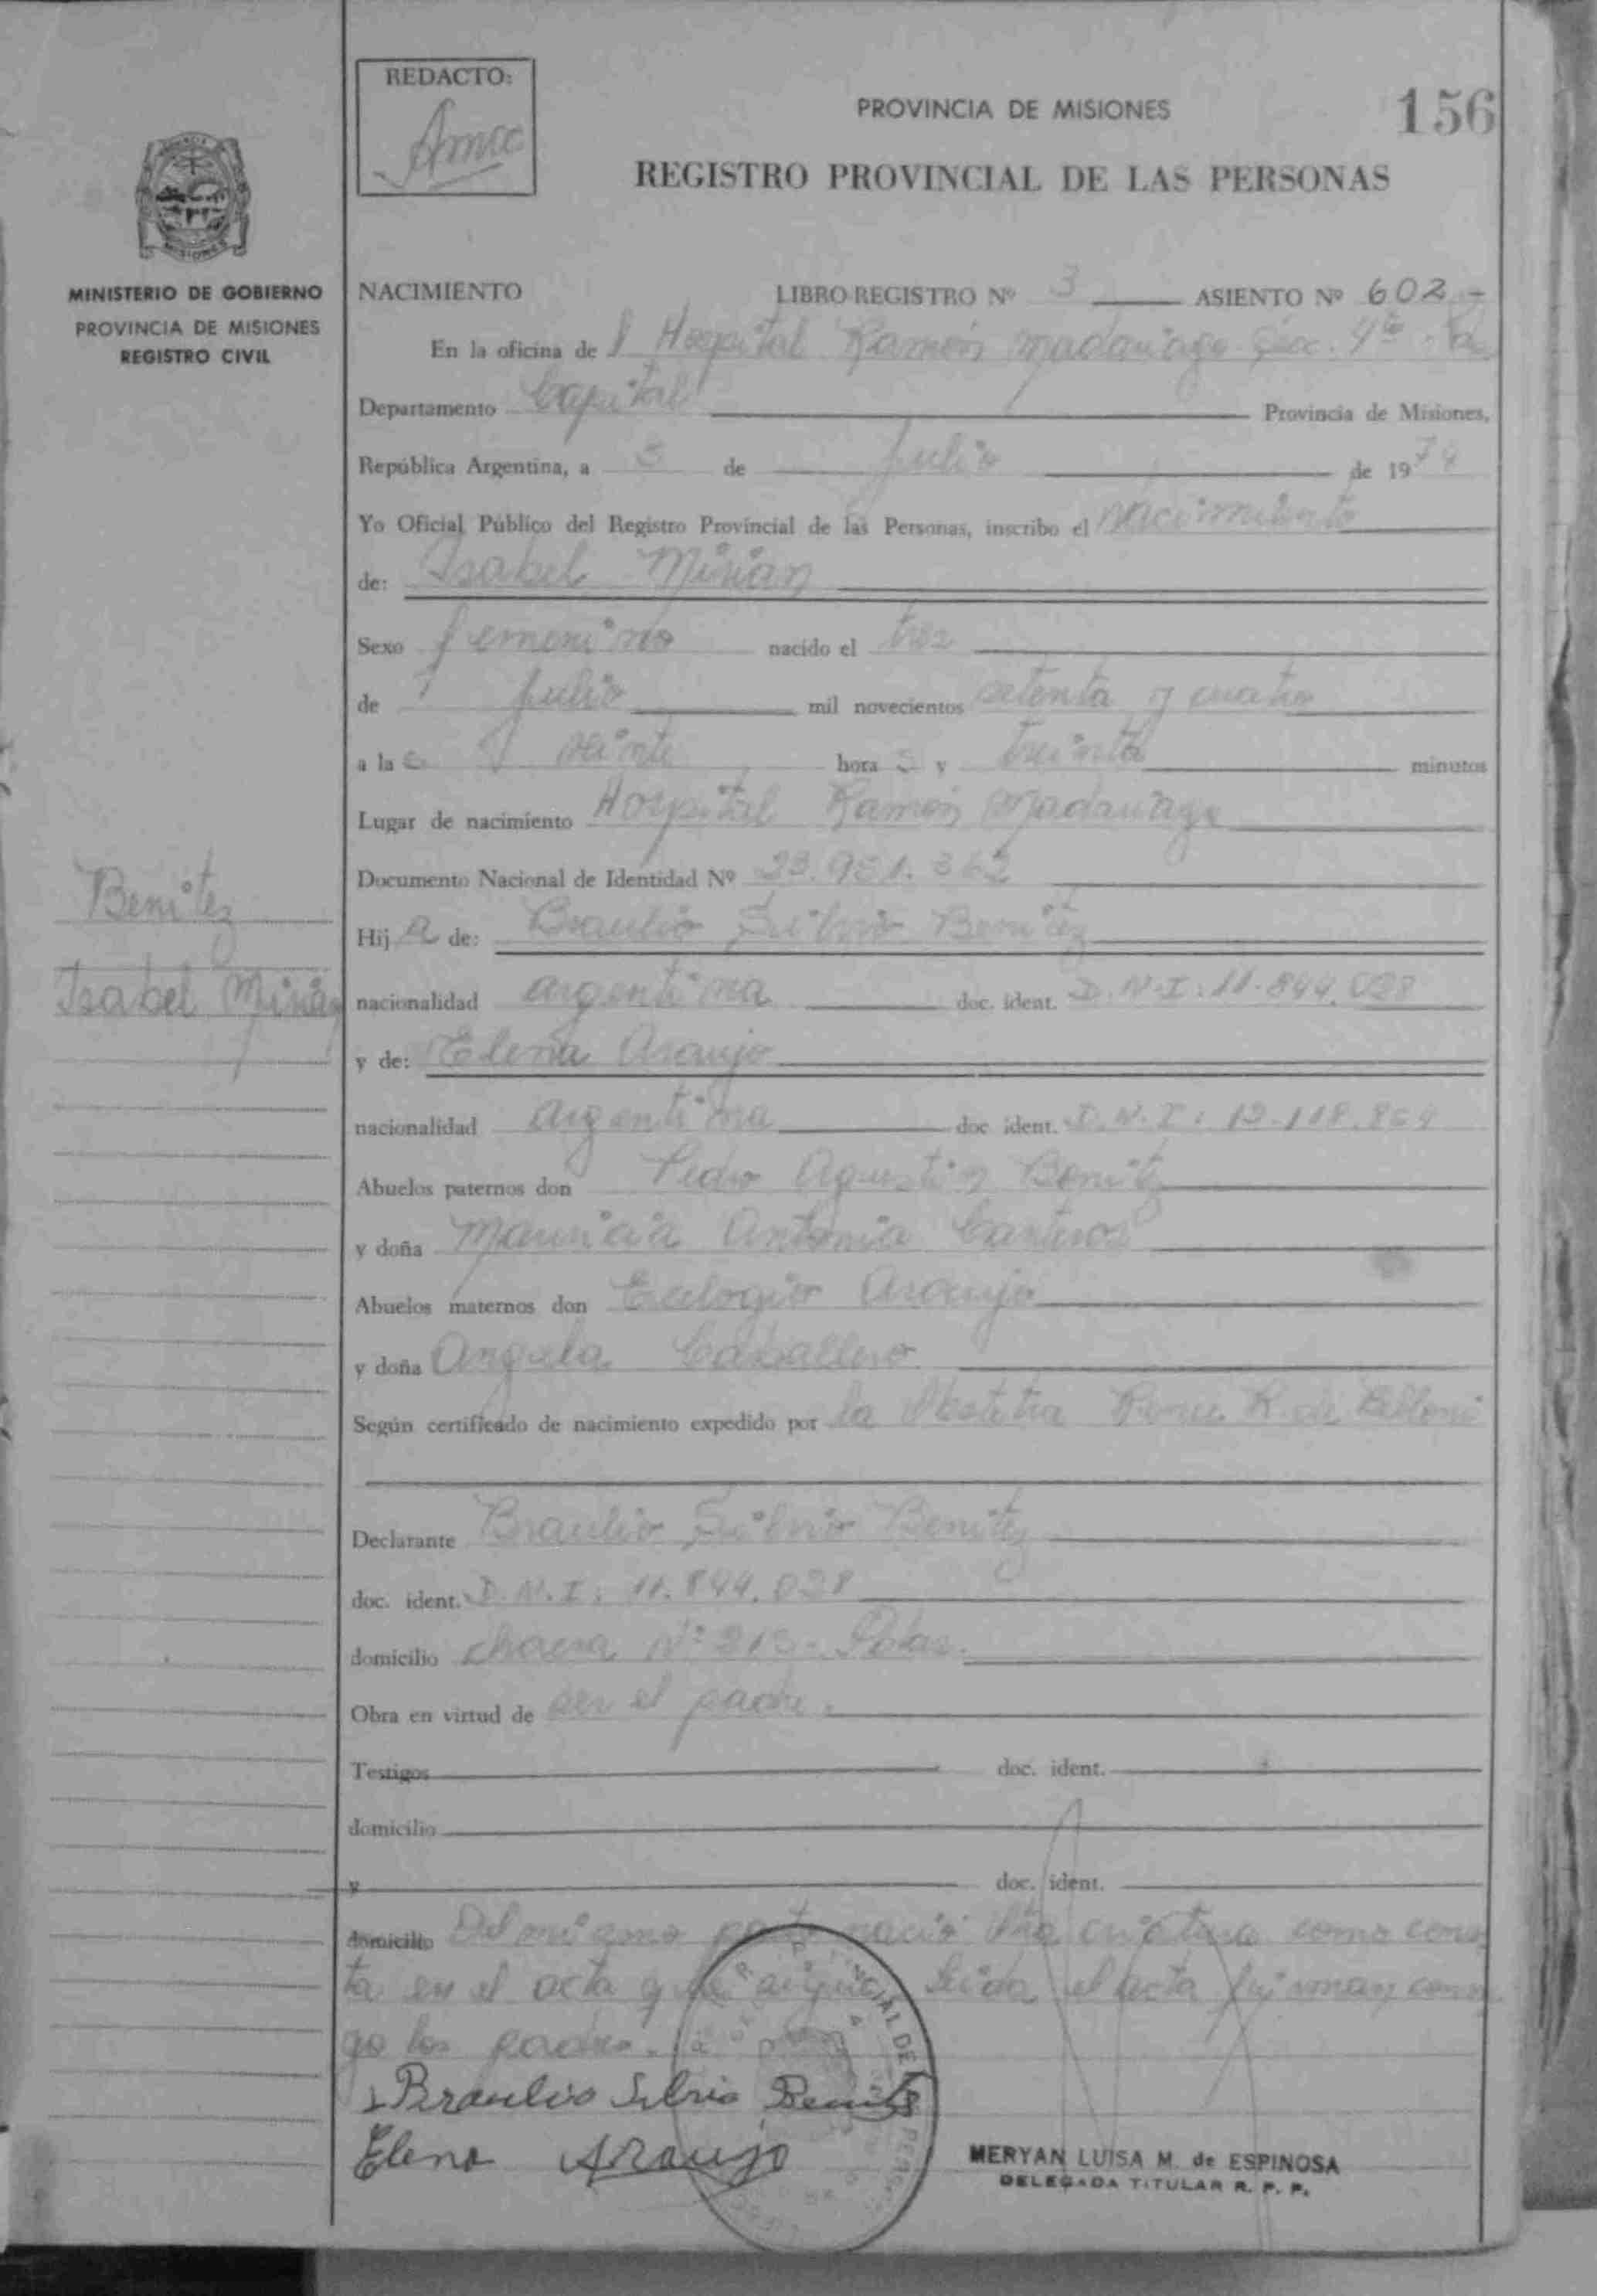 REDACTO:
PROVINCIA DE MISIONES
156
REGISTRO PROVINCIAL DE LAS PERSONAS
MINISTERIO DE GOBIERNO
PROVINCIA DE MISIONES
REGISTRO CIVIL
NACIMIENTO LIBRO REGISTRO Nº 3 ASIENTO Nº 602
En la oficina de l Hospital Ramón Madariaga Sec. 4ta
Departamento Capital Provincia de Misiones,
República Argentina, a de Julio de 19
Yo Oficial Público del Registro Provincial de las Personas, inscribo el nacimiento
de: Isabel Mirian
Sexo femenino nacido el tres
de Julio mil novecientos setenta y cuatro
a la s veinte hora s y treinta minutos
Lugar de nacimiento Hospital Ramón Madariaga
Documento Nacional de Identidad Nº 23.951.362
Benitez
Hij a de: Braulio Silvio Benitez
Isabel Mirian
nacionalidad argentina doc. ident. D.N.I: 11.844.028
y de: Elena Araujo
nacionalidad argentina doc ident. D.N.I: 12.118.869
Abuelos paternos don Pedro Agustin Benitez
y doña Mauricia Antonia Canteros
Abuelos maternos don Eulogio Araujo
y doña Angela Caballero
Según certificado de nacimiento expedido por la Obstetra R. de Belloni
Declarante Braulio Silvio Benitez
doc. ident. D.N.I: 11.844.028
domicilio chacra Nº 213 - Pdas.
Obra en virtud de ser el padre.
Testigos doc. ident.
domicilio
y doc. ident.
domicilio Del mismo parto nació otra criatura como cons
ta en el acta que sigue, leida el acta firman conmi
go los padres.
Braulio Silvio Benitez
Elena Araujo
MERYAN LUISA M. de ESPINOSA
DELEGADA TITULAR R. P. P.